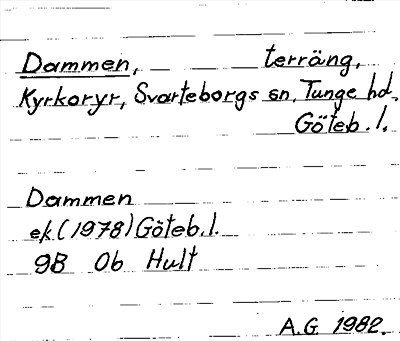 Dammen, terräng,
Kyrkoryr, Svarteborgs sn, Tunge hd.
Göteb. l.
Dammen
ek. (1978) Göteb. l.
9B 0b Hult
A.G. 1982.